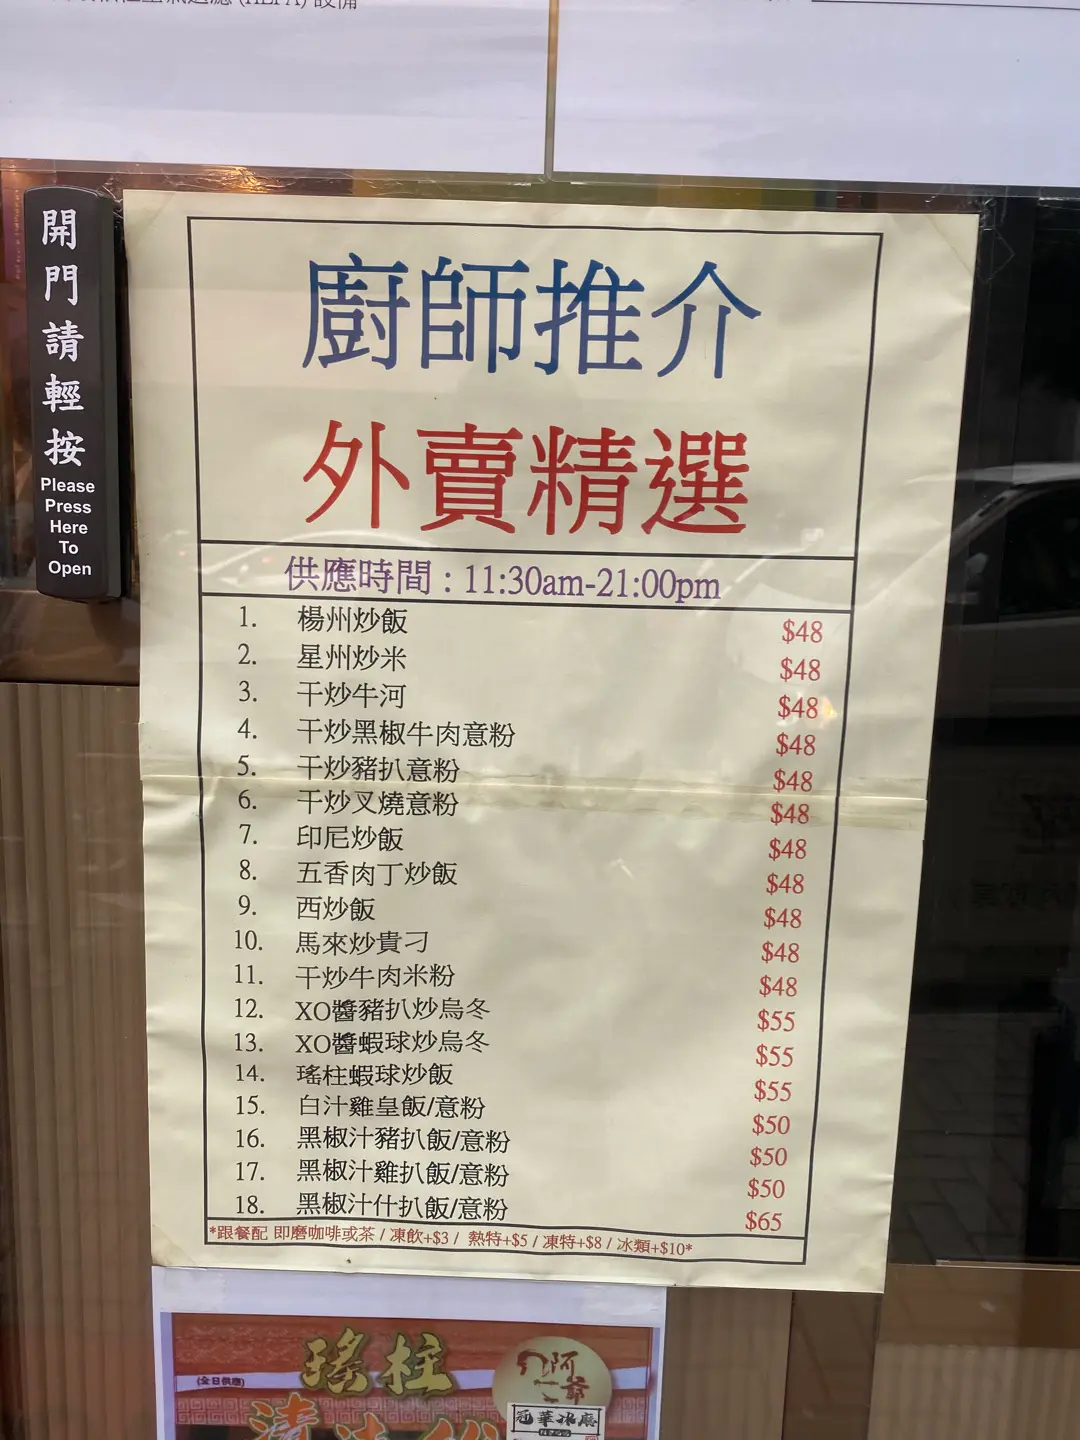 (HEPA) 設備
開門請輕按
Please
Press
Here
To
Open
廚師推介
外賣精選
供應時間：11:30am-21:00pm
1. 楊州炒飯 $48
2. 星州炒米 $48
3. 干炒牛河 $48
4. 干炒黑椒牛肉意粉 $48
5. 干炒豬扒意粉 $48
6. 干炒叉燒意粉 $48
7. 印尼炒飯 $48
8. 五香肉丁炒飯 $48
9. 西炒飯 $48
10. 馬來炒貴刁 $48
11. 干炒牛肉米粉 $48
12. XO醬豬扒炒烏冬 $55
13. XO醬蝦球炒烏冬 $55
14. 瑤柱蝦球炒飯 $55
15. 白汁雞皇飯/意粉 $50
16. 黑椒汁豬扒飯/意粉 $50
17. 黑椒汁雞扒飯/意粉 $50
18. 黑椒汁什扒飯/意粉 $65
*跟餐配 即磨咖啡或茶 / 凍飲+$3 / 熱特+$5 / 凍特+$8 / 冰類+$10*
瑤柱
(全日供應)
阿爺
冠華冰廳